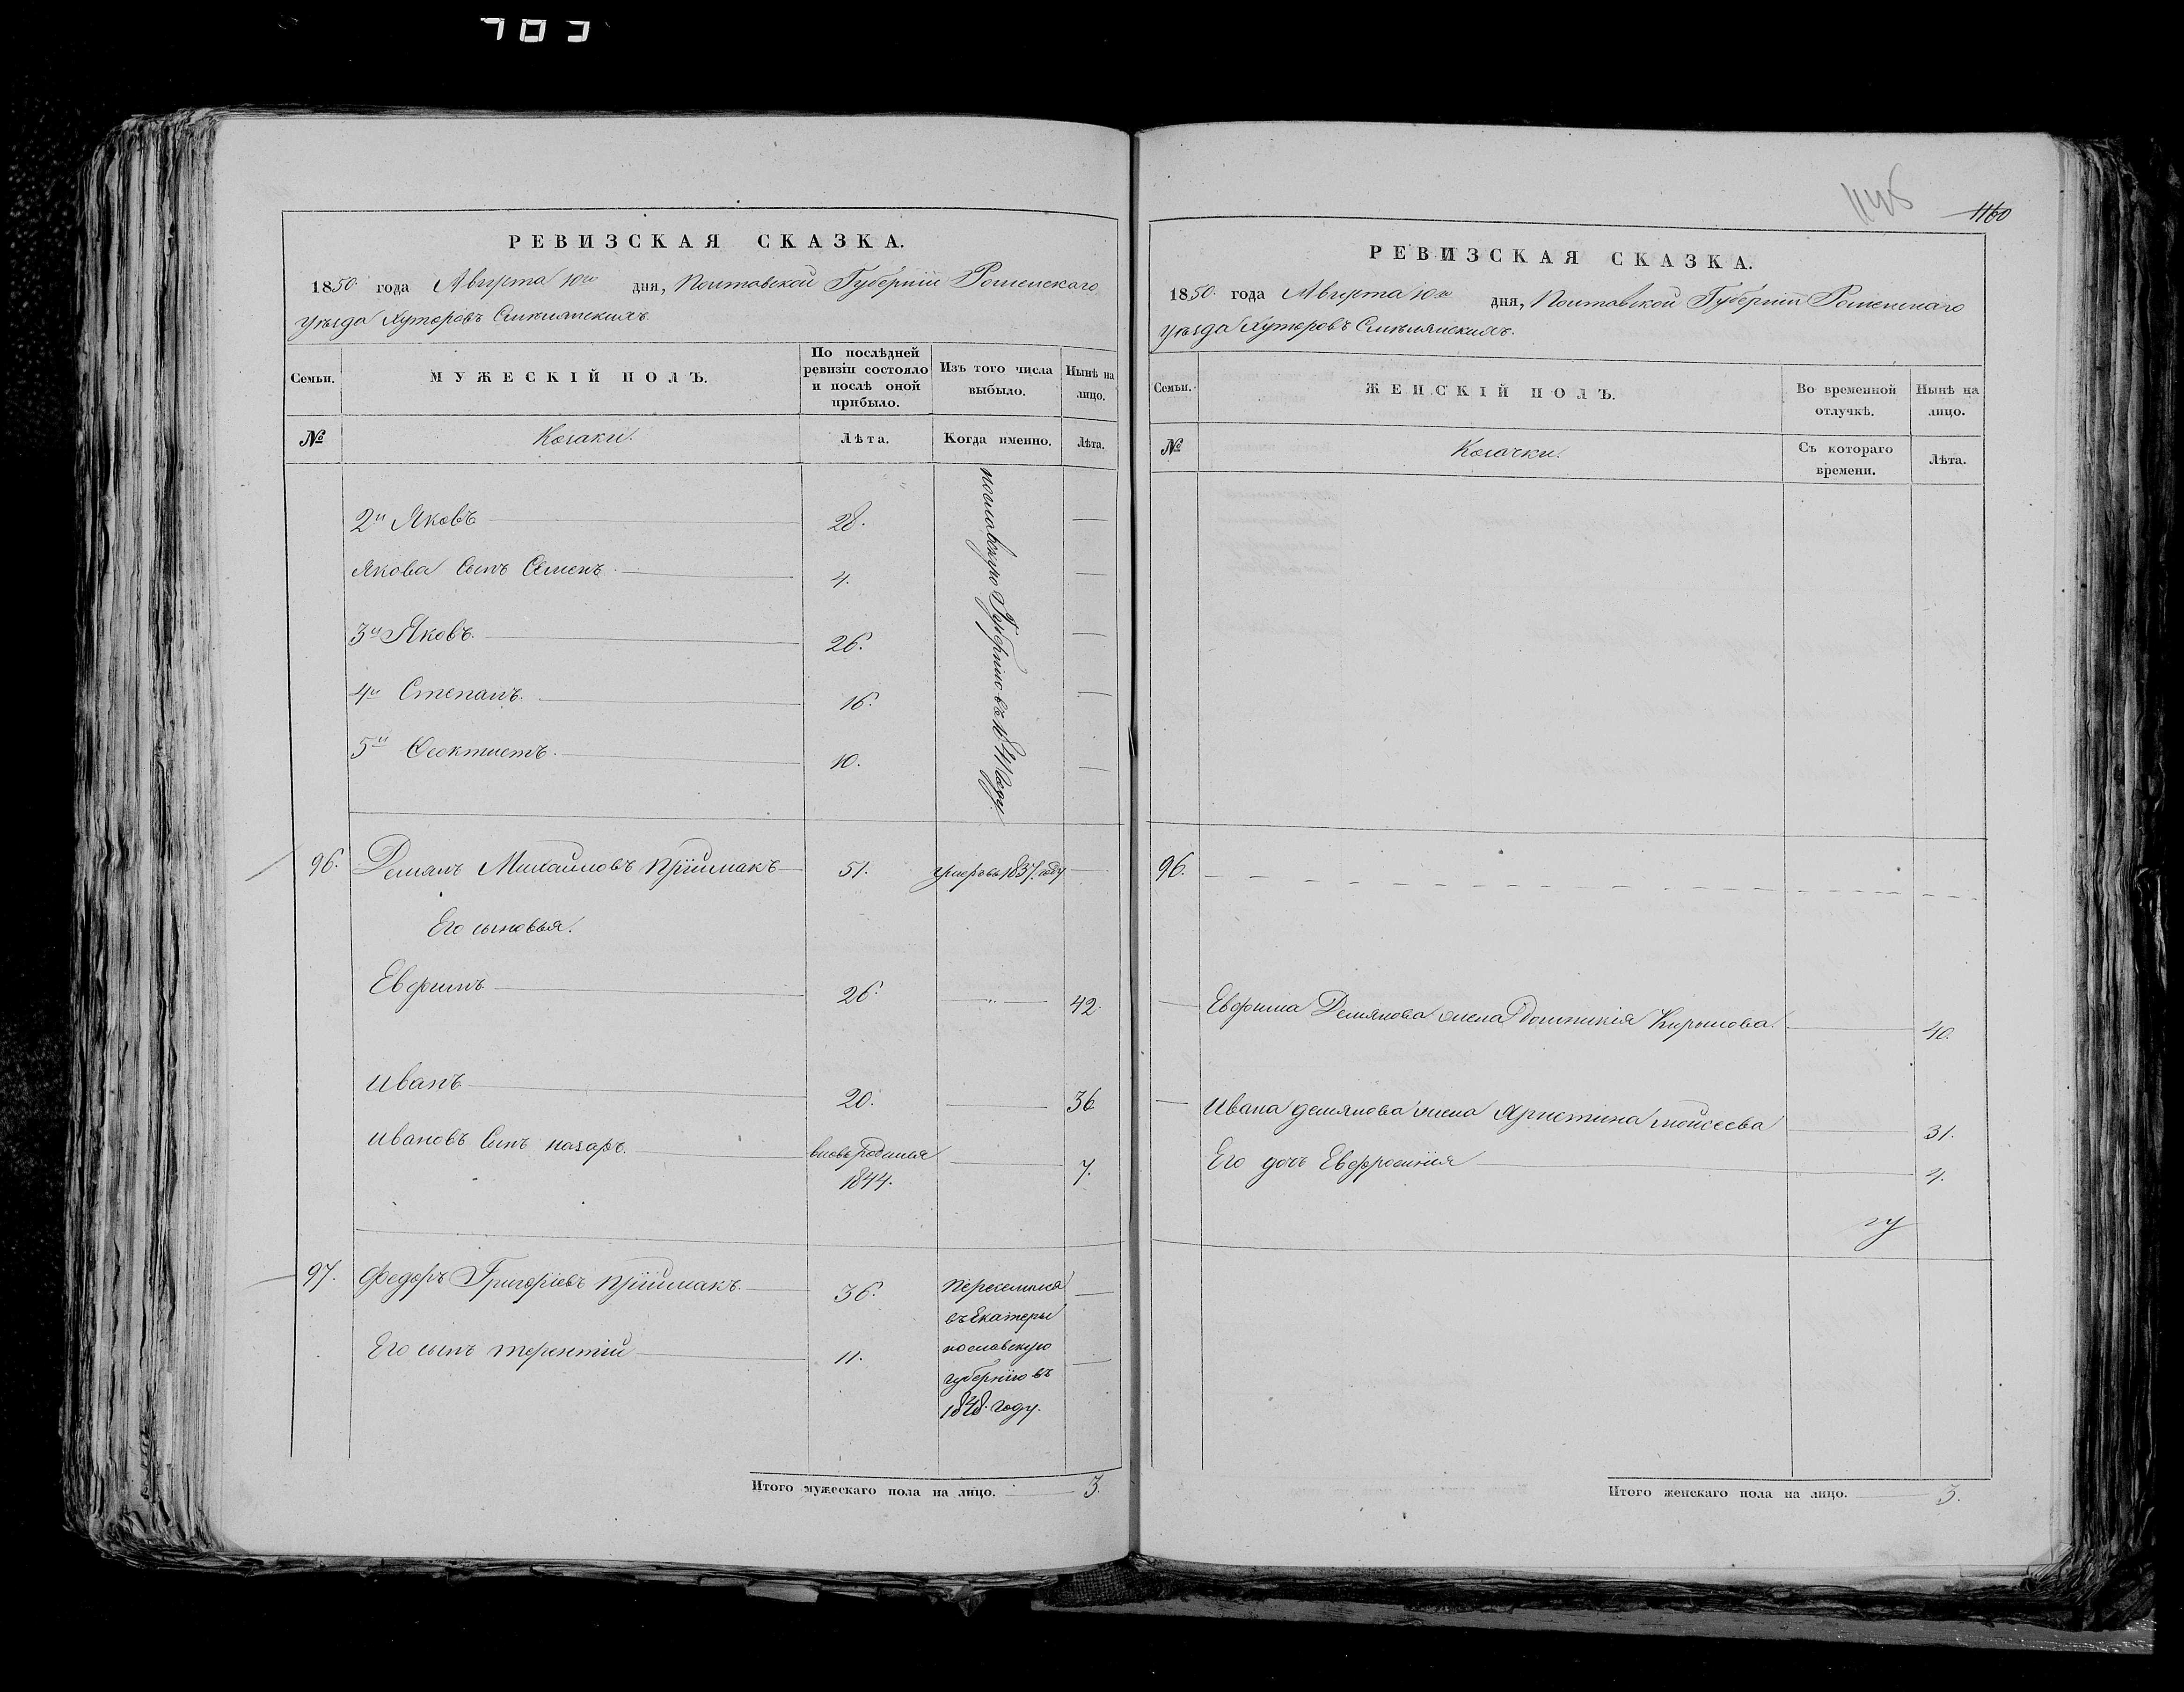 703
РЕВИЗСКАЯ СКАЗКА.
1850 года Августа 10го дня, Полтавской Губерніи Роменскаго
уѣзда Хуторовъ Смѣлянскихъ.
Семьи.
МУЖЕСКІЙ ПОЛЪ.
По послѣдней
ревизіи состояло
и послѣ оной
прибыло.
Изъ того числа
выбыло.
Нынѣ на
лицо.
№
Козаки.
Лѣта.
Когда именно.
Лѣта.
нославскую Губернію въ 1841 году
2й Яковъ 28.
Якова сынъ Семенъ 4.
3й Яковъ 26.
4й Степанъ 16.
5й Феоктистъ 10.
96. Демянъ Михайловъ Пріймакъ 51. умеръ въ 1837 году
Его сыновья.
Евфимъ 26. 42.
Иванъ 20. 36
Ивановъ Сынъ Назаръ вновь Родился 7.
1844.
97. Федоръ Григоріевъ Пріймакъ 36. Переселился
въ Екатери
Его сынъ Терентій 11. нославскую
губернію въ
1848 году.
Итого мужескаго пола на лицо. 3.
1145
1160
РЕВИЗСКАЯ СКАЗКА.
1850 года Августа 10го дня, Полтавской Губерніи Роменскаго
уѣзда Хуторовъ Смѣлянскихъ.
Семьи.
ЖЕНСКІЙ ПОЛЪ.
Во временной
отлучкѣ.
Нынѣ на
лицо.
№
Козачки.
Съ котораго
времени.
Лѣта.
96.
Евфима Демянова жена Домникія Кирилова 40.
Ивана демянова жена Христина моисеева 31.
Его дочь Евфросинія 4.
Итого женскаго пола на лицо. 3.